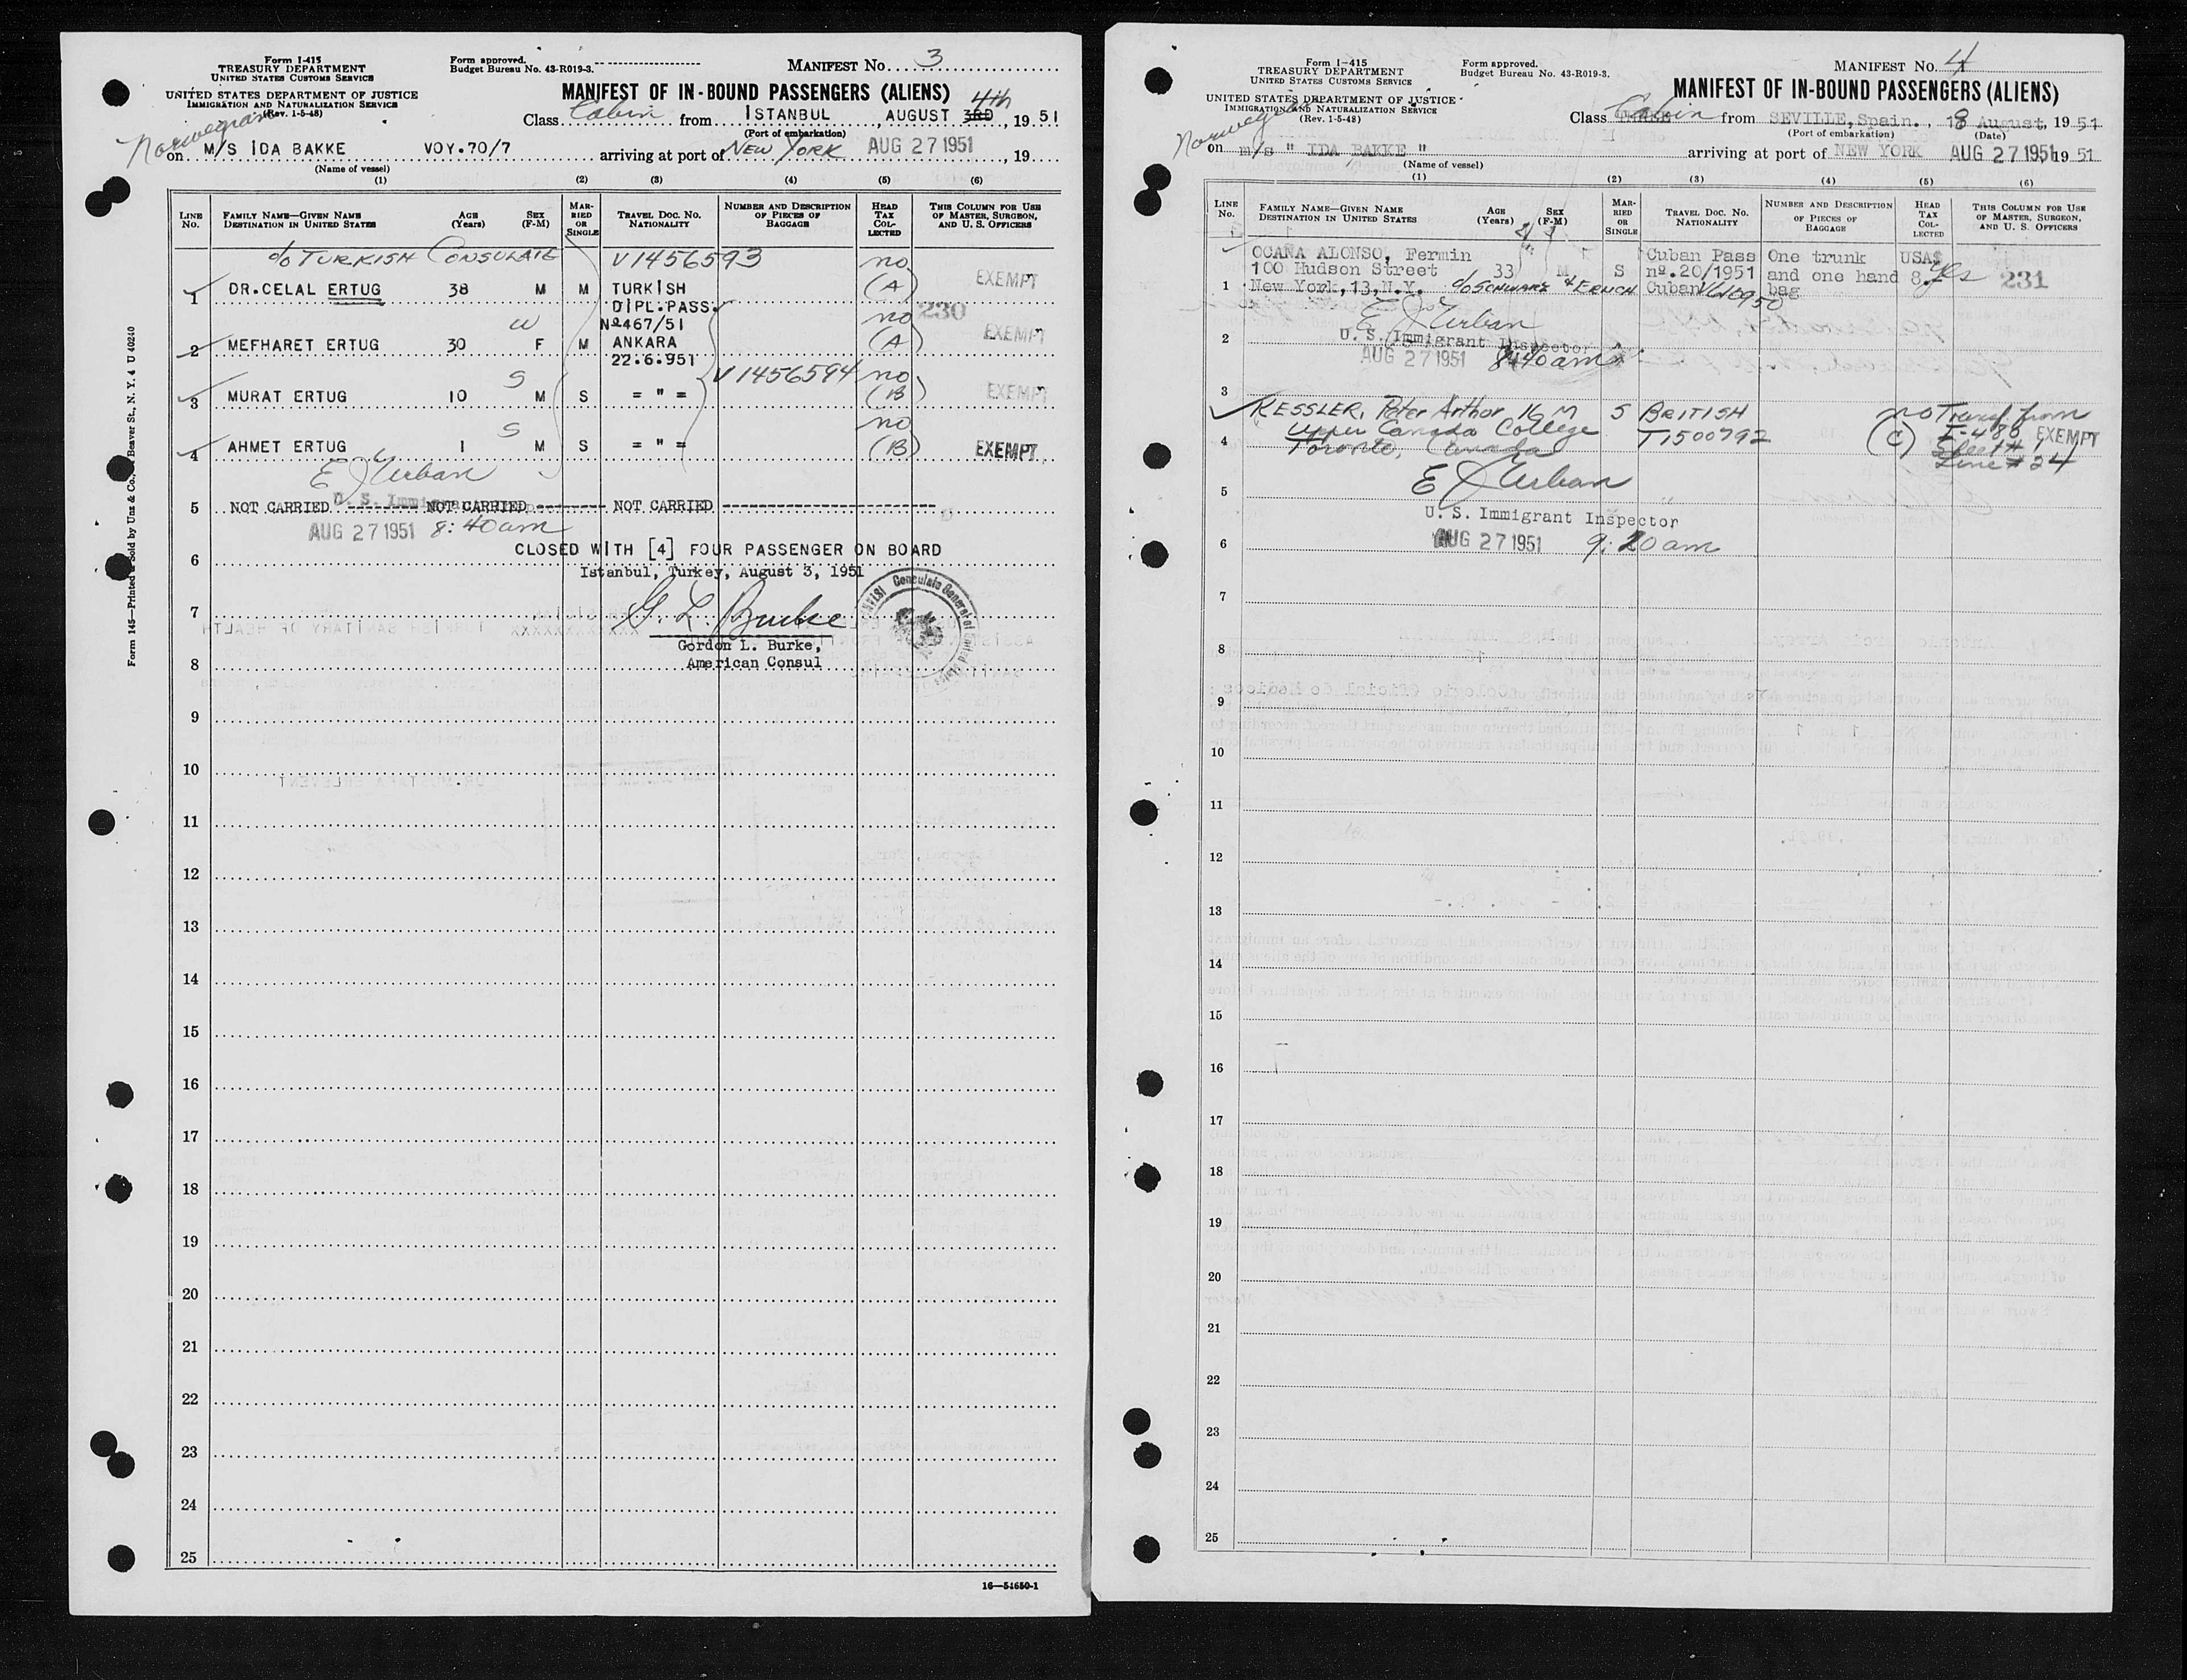 Form I-415
TREASURY DEPARTMENT
UNITED STATES CUSTOMS SERVICE
UNITED STATES DEPARTMENT OF JUSTICE
IMMIGRATION AND NATURALIZATION SERVICE
(Rev. 1-5-48)
Form approved.
Budget Bureau No. 43-R019-3.
MANIFEST No. 3
MANIFEST OF IN-BOUND PASSENGERS (ALIENS)
Class Cabin from ISTANBUL, AUGUST 3RD 4th, 1951
(Port of embarkation)
Norwegian
on M/S IDA BAKKE VOY.70/7 arriving at port of NEW YORK AUG 27 1951, 19
(Name of vessel)
(1) (2) (3) (4) (5) (6)
LINE No.
FAMILY NAME—GIVEN NAME
DESTINATION IN UNITED STATES
AGE (Years)
SEX (F-M)
MARRIED OR SINGLE
TRAVEL DOC. No.
NATIONALITY
NUMBER AND DESCRIPTION OF PIECES OF BAGGAGE
HEAD TAX COLLECTED
THIS COLUMN FOR USE OF MASTER, SURGEON, AND U. S. OFFICERS
c/o TURKISH CONSULATE V1456593 no
1 DR.CELAL ERTUG 38 M M TURKISH (A) EXEMPT
DIPL.PASS.
W Nº467/51 no 230
2 MEFHARET ERTUG 30 F M ANKARA (A) EXEMPT
22.6.951
S V1456594 no
3 MURAT ERTUG 10 M S = " = (B) EXEMPT
S no
4 AHMET ERTUG 1 M S = " = (B) EXEMPT
E J Urban
U. S. Immigrant Inspector
5 NOT CARRIED NOT CARRIED NOT CARRIED
AUG 27 1951 8:40am
CLOSED WITH [4] FOUR PASSENGER ON BOARD
6
Istanbul, Turkey, August 3, 1951
7
G. L. Burke
Gordon L. Burke,
8 American Consul
9
10
11
12
13
14
15
16
17
18
19
20
21
22
23
24
25
16—54650-1
Form I-415
TREASURY DEPARTMENT
UNITED STATES CUSTOMS SERVICE
UNITED STATES DEPARTMENT OF JUSTICE
IMMIGRATION AND NATURALIZATION SERVICE
(Rev. 1-5-48)
Form approved.
Budget Bureau No. 43-R019-3.
MANIFEST No. 4
MANIFEST OF IN-BOUND PASSENGERS (ALIENS)
Class Cabin from SEVILLE, Spain., 18 August, 1951
(Port of embarkation) (Date)
Norwegian
on m/s " IDA BAKKE " arriving at port of NEW YORK AUG 27 1951, 1951
(Name of vessel)
(1) (2) (3) (4) (5) (6)
LINE No.
FAMILY NAME—GIVEN NAME
DESTINATION IN UNITED STATES
AGE (Years)
SEX (F-M)
MARRIED OR SINGLE
TRAVEL DOC. No.
NATIONALITY
NUMBER AND DESCRIPTION OF PIECES OF BAGGAGE
HEAD TAX COLLECTED
THIS COLUMN FOR USE OF MASTER, SURGEON, AND U. S. OFFICERS
OCAÑA ALONSO, Fermin Cuban Pass One trunk USA$
100 Hudson Street 33 M S nº.20/1951 and one hand 8.- yes 231
1 New York,13,N.Y. c/o SCHWARZ Cuban bag
E J Urban
2 U. S. Immigrant Inspector
AUG 27 1951 8:40am
3
KESSLER, Peter Arthur 16 M S BRITISH no Transf. from
4 Upper Canada College T1500792 (C) I-486 EXEMPT
Toronto, Canada Sheet # 1
Line # 24
5 E J Urban
U. S. Immigrant Inspector
6 AUG 27 1951 9:20am
7
8
9
10
11
12
13
14
15
16
17
18
19
20
21
22
23
24
25